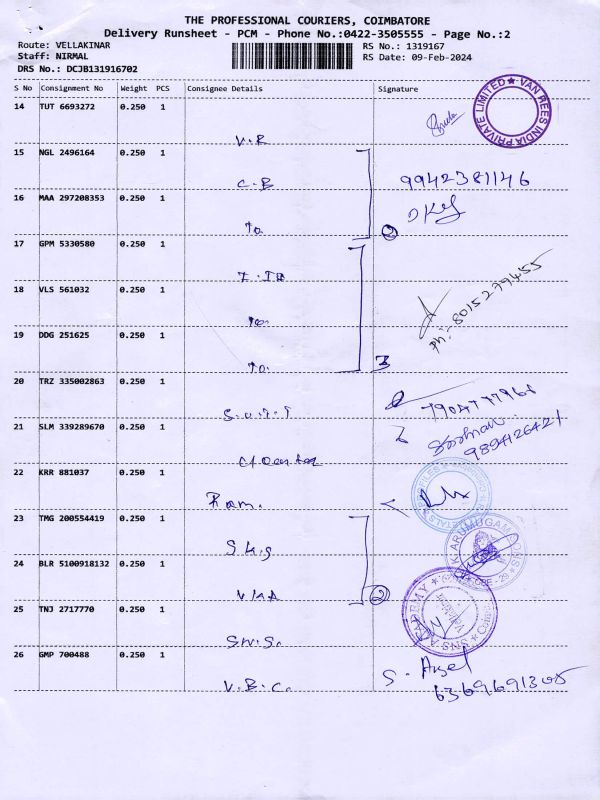 THE PROFESSIONAL COURIERS, COIMBATORE
Delivery Runsheet - PCM - Phone No.:0422-3505555 - Page No.:2
Route: VELLAKINAR
RS No.: 1319167
Staff: NIRMAL
RS Date: 09-Feb-2024
DRS No.: DCJB131916702
S No Consignment No Weight PCS Consignee Details Signature
14 TUT 6693272 0.250 1
VAN REES INDIA PRIVATE LIMITED
V.R
15 NGL 2496164 0.250 1
C.B
9942381146
16 MAA 297208353 0.250 1
To
2
17 GPM 5330580 0.250 1
18 VLS 561032 0.250 1
To
ph: 8015279455
19 DDG 251625 0.250 1
To
3
20 TRZ 335002863 0.250 1
21 SLM 339289670 0.250 1
9894126421
22 KRR 881037 0.250 1
Ram.
23 TMG 200554419 0.250 1
24 BLR 5100918132 0.250 1
2
25 TNJ 2717770 0.250 1
SNS ACADEMY
26 GMP 700488 0.250 1
V.B.C.